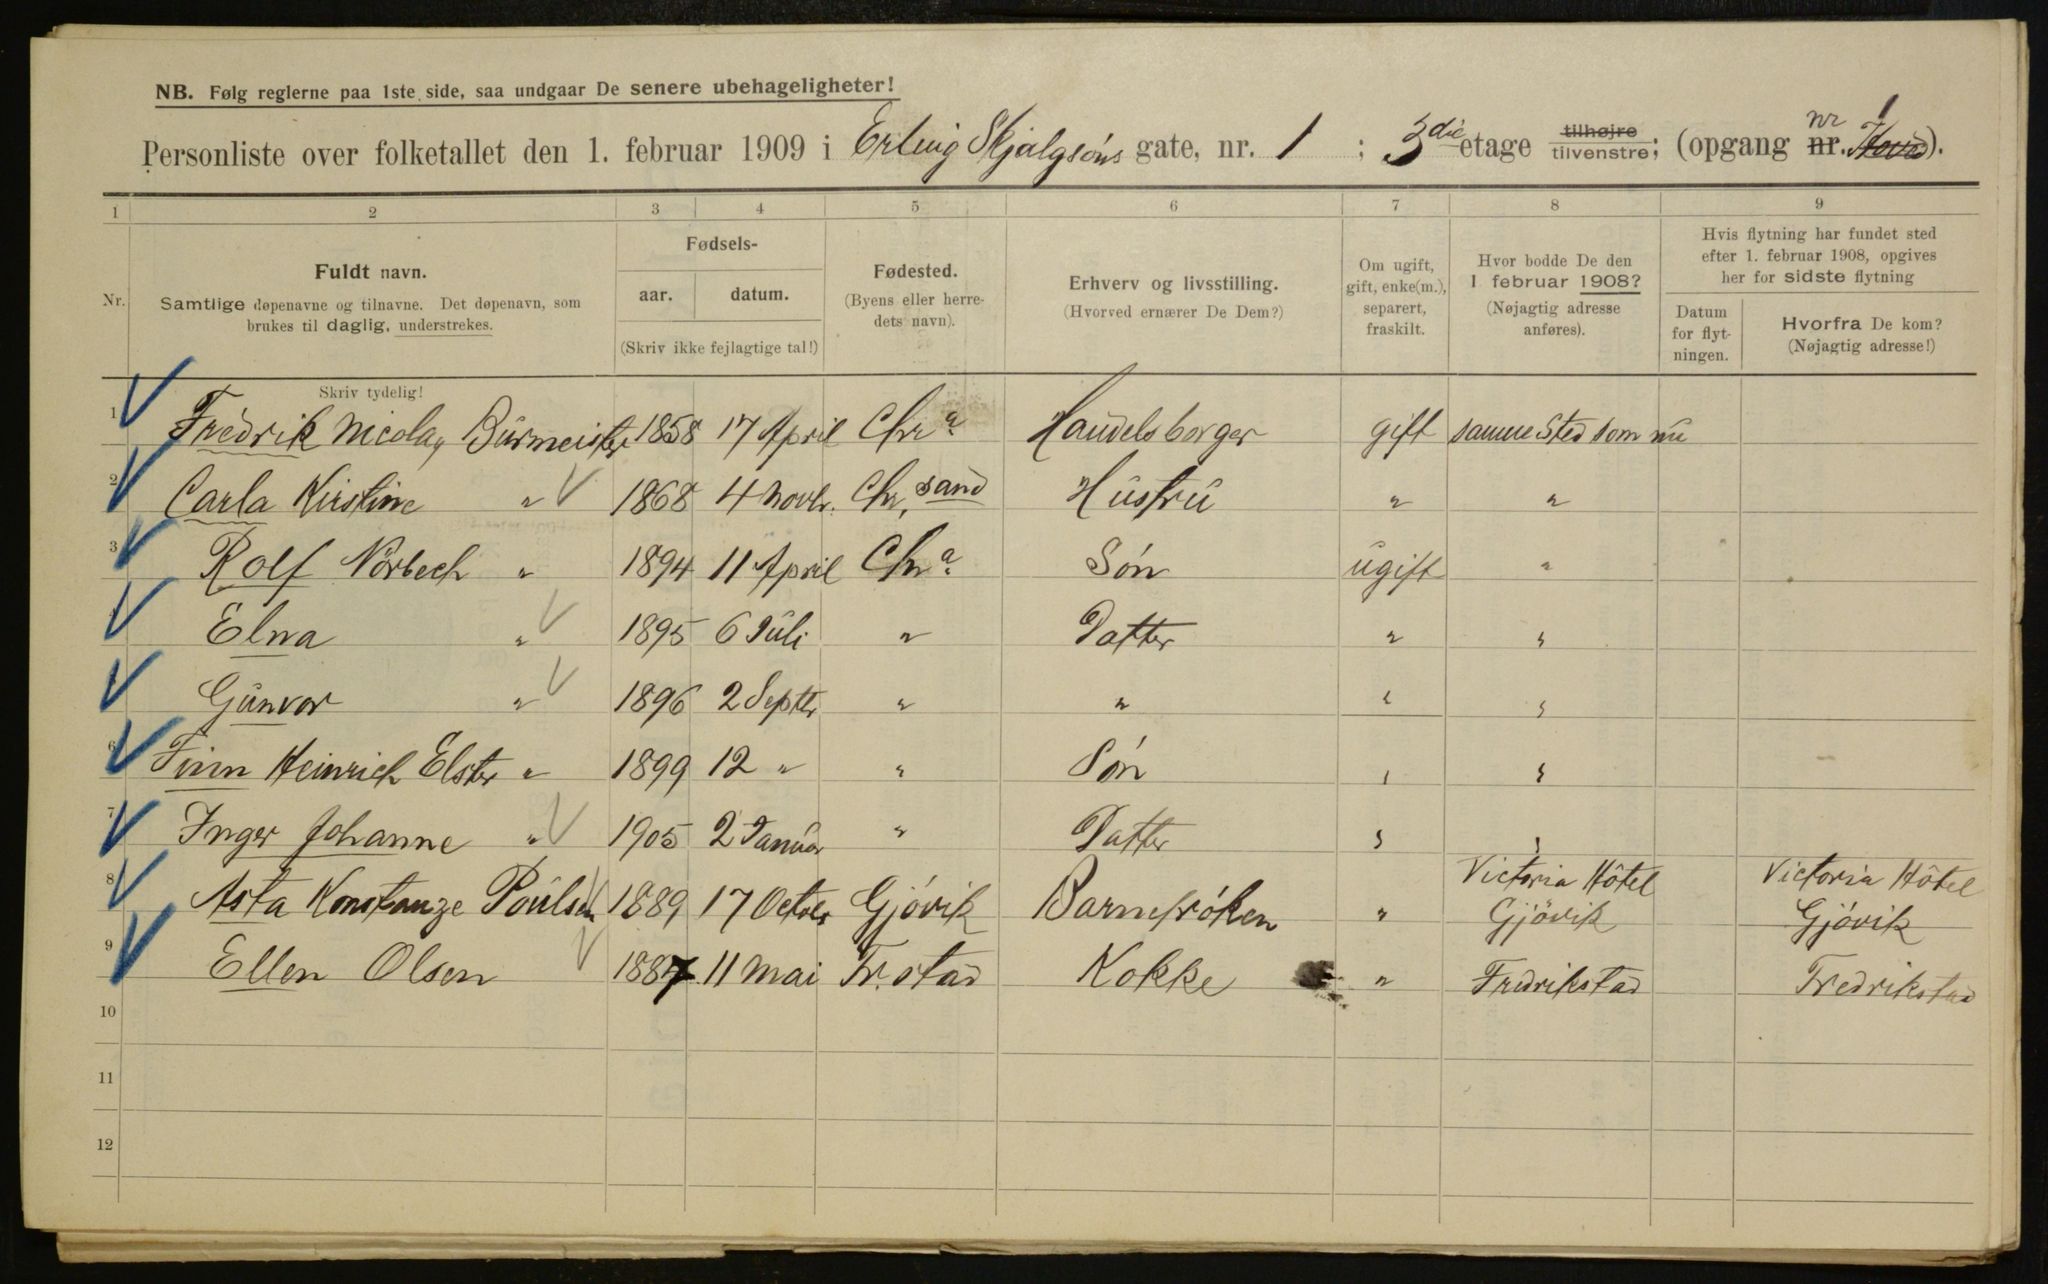 NB. Følg reglerne paa 1ste side, saa undgaar De senere ubehageligheter!
Personliste over folketallet den 1. februar 1909 i Erling Skjalgsóns gate, nr. 1 ; 3die etage tilhøjre tilvenstre; (opgang nr. nr 1).
1 2 3 4 5 6 7 8 9
Nr.
Fuldt navn.
Samtlige døpenavne og tilnavne. Det døpenavn, som
brukes til daglig, understrekes.
Skriv tydelig!
Fødsels-
aar. datum.
(Skriv ikke fejlagtige tal!)
Fødested.
(Byens eller herre-
dets navn).
Erhverv og livsstilling.
(Hvorved ernærer De Dem?)
Om ugift,
gift, enke(m.),
separert,
fraskilt.
Hvor bodde De den
1 februar 1908?
(Nøjagtig adresse
anføres).
Hvis flytning har fundet sted
efter 1. februar 1908, opgives
her for sidste flytning
Datum
for flyt-
ningen.
Hvorfra De kom?
(Nøjagtig adresse!)
1 Fredrik Nicolay Burmeister 1858 17 April Chr.a Handelsborger gift samme Sted som nu
2 Carla Kirstine " 1868 4 Novbr. Chr.sand Hustru " "
3 Rolf Nórbech " 1894 11 April Chr.a Són ugift "
4 Elna " 1895 6 Juli " Datter " "
Gunvor " 1896 2 Septbr " " " "
6 Finn Heinrich Elster " 1899 12 " " Són " "
7 Inger Johanne " 1905 2 Januar " Datter " "
8 Asta Konstanze Poulsen 1889 17 Octbr Gjóvik Barnefróken " Victoria Hôtel Gjóvik Victoria Hôtel Gjóvik
9 Ellen Olsen 1887 11 Mai Fr.stad Kokke " Fredrikstad Fredrikstad
10
11
12